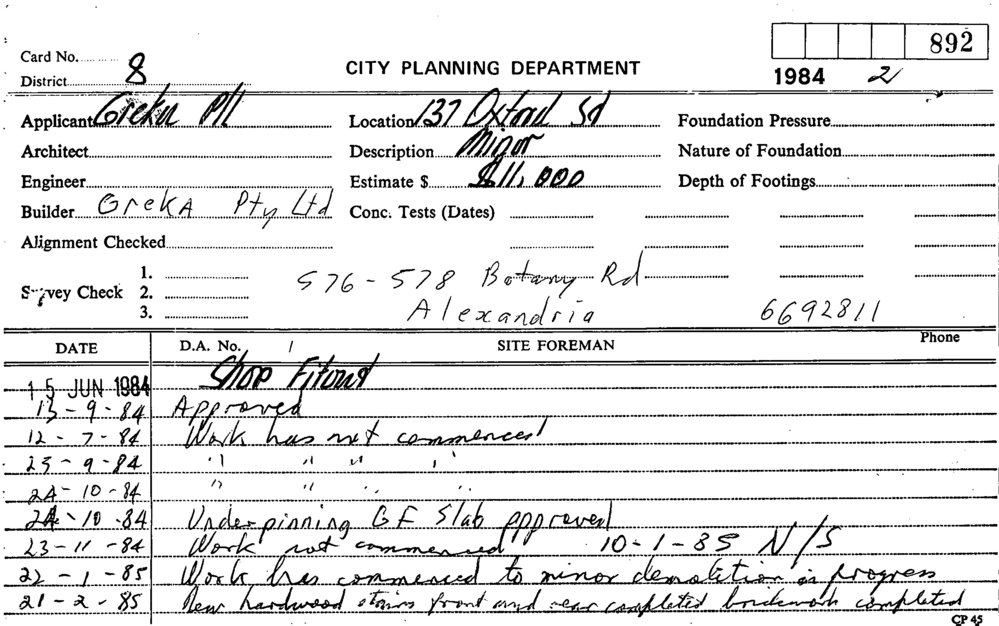 892
Card No. 8
CITY PLANNING DEPARTMENT
1984 2
District
Applicant Greka P/L Location 137 Oxford Sd Foundation Pressure
Architect Description Minor Nature of Foundation
Engineer Estimate $ $11,000 Depth of Footings
Builder Greka Pty Ltd Conc. Tests (Dates)
Alignment Checked
1.
576-578 Botany Rd
Survey Check 2.
3.
Alexandria 6692811
DATE D.A. No. / SITE FOREMAN Phone
15 JUN 1984 Shop Fitout
13-9-84 Approved
12-7-84 Work has not commenced
23-9-84 " " " "
24-10-84 " " " "
24-10-84 Underpinning GF Slab approved
23-11-84 Work not commenced 10-1-85 N/S
22-1-85 Work has commenced to minor demolition in progress
21-2-85 New hardwood stairs front and rear completed brickwork completed
CP 45